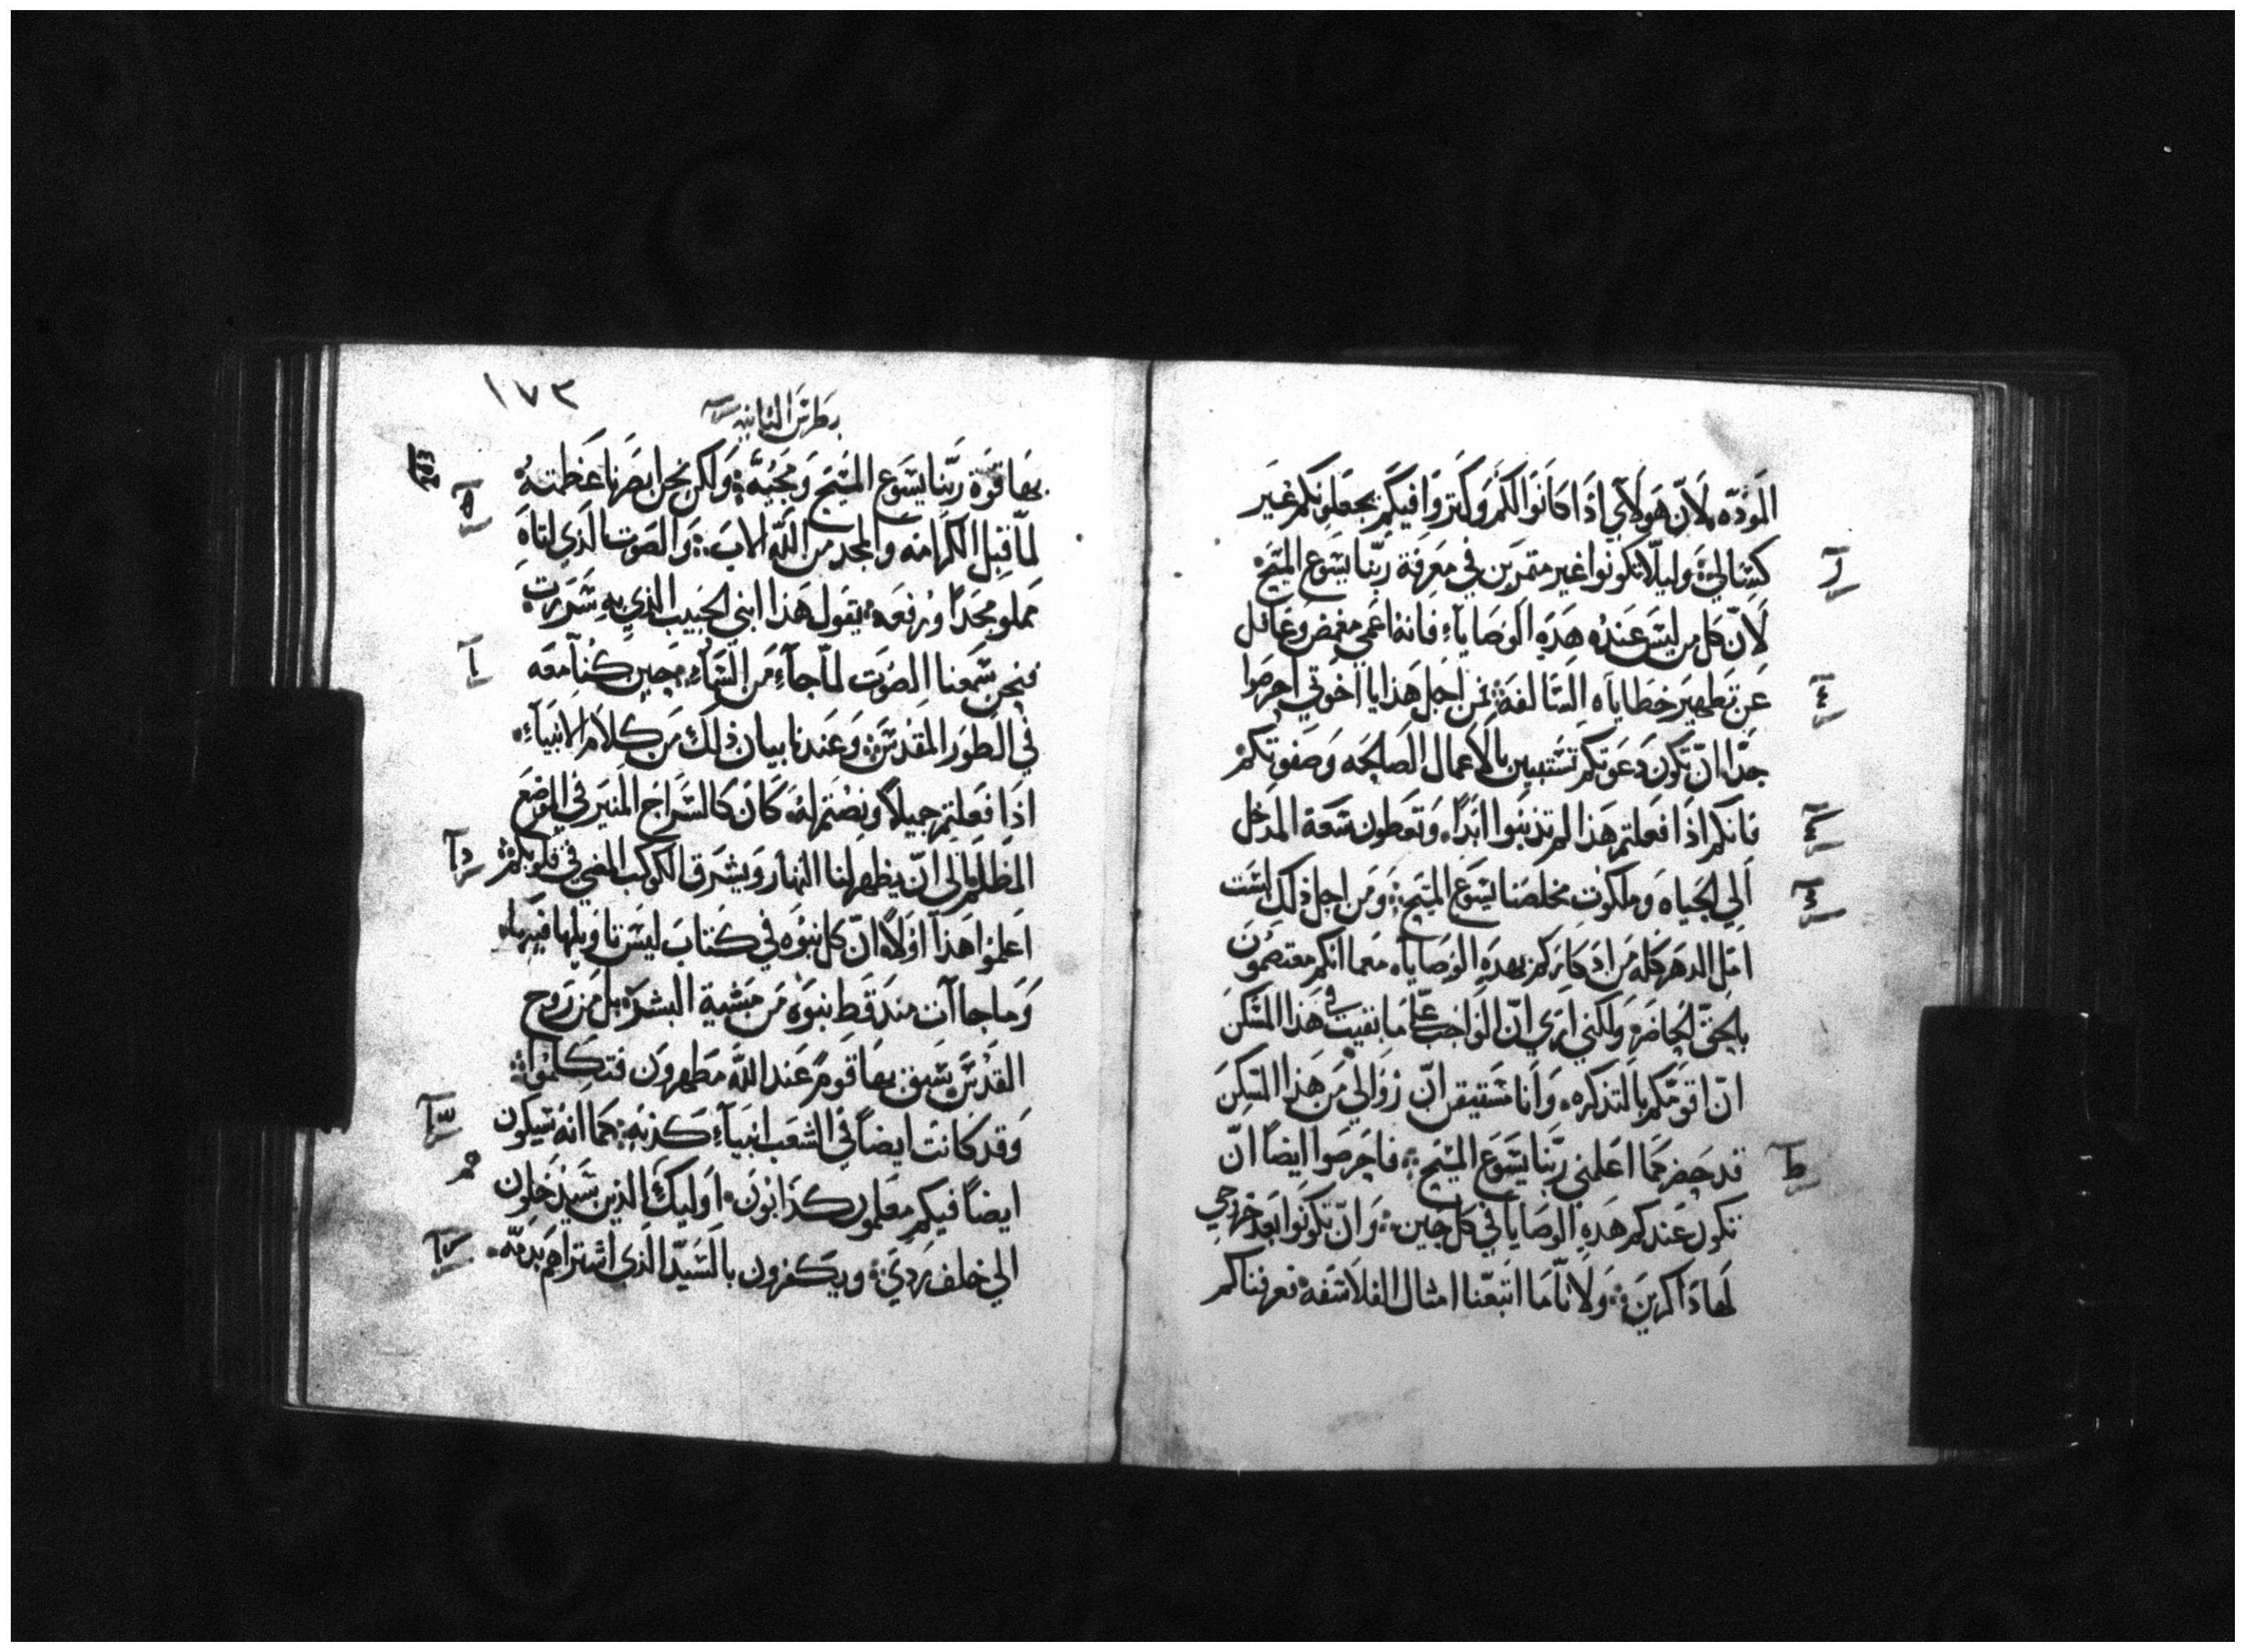 المَودّه لاَن هَولاَي اذا كانَوا لكم وكتروا فيكم يجعَلونكم غير
كسَالي وليلا تكونوا غير متمرين في معَرفة ربنا يسَوع المسَيح
لاَن كل من ليسَ عَنده هَذه الوصَايا فانه اعمي مغمض وغافل
عَن تطهير خطاياه السَالفة فمن اجل هَذا يا اخوتي احرصَوا
جدا ان تكون دَعَوتكم تستبين بالاَعمال الصَالحه وصَفوتكم
فانكم اذا فعلتم هَذا لم تدنبوا ابدا وتعطون سَعة المدخل
الي الحياه وملكوت مخلصَنا يسَوع المسَيح ومن اجل ذلك لسَت
امل الدهر كله من ادكاركم بهَده الوصَايا معما انكم معتصمون
بالحق الحاضر ولكني اري ان الواجب علي ما بقيت في هَذا المسَكن
ان اقومكم بالتذكره وانا مسَتيقن ان زوالي من هَذا المسَكن
قد حضر كما اعَلمني ربنا يسَوع المسَيح فاحرصَوا ايضا ان
تكون عَندكم هَده الوصَايا في كل حين وان تكونوا بعد خروجي
لها ذاكرين ولاَنا ما اتبعَنا امثال الفلاسَفه فعرفناكم
١٧٣
بطرس الثانيه
بها قوة ربنا يسَوع المسَيح ومجيه ولكن نحن ابصَرنا عَظمته
لما قبل الكرامه والمجد من الله الاب والصَوت الذي اتاه
مملو مجدا ورفعه يقول هَذا ابني الحبيب الذي به سَررت
فنحن سَمعنا الصَوت لما جاء من السَماء حين كنا معه
في الطور المقدسَ وعَندنا بيان ذلك من كلاَم الاَنبياء
اذا فعلتم جميلا ونصتم له كان كالسَراج المنير في الموضع
المظلم الي ان يظهر لنا النهار ويشرق الكوكب المضي في قلوبكم
اعَلموا هَذا اولا ان كل نبوه في كتاب ليسَ تاويلها فيها
وما جاات مند قط نبوه من مشية البشر بل من روح
القدسَ سَبق بها قوم عَند الله مطهرون فتكلموا
وقد كانت ايضا في الشعب انبياء كذبه كما انه سَيكون
ايضا فيكم معَلمون كدابون اوليك الذين سَيدخلون
الي خلف ردي ويكفرون بالسَيد الذي اشتراهم بدمه